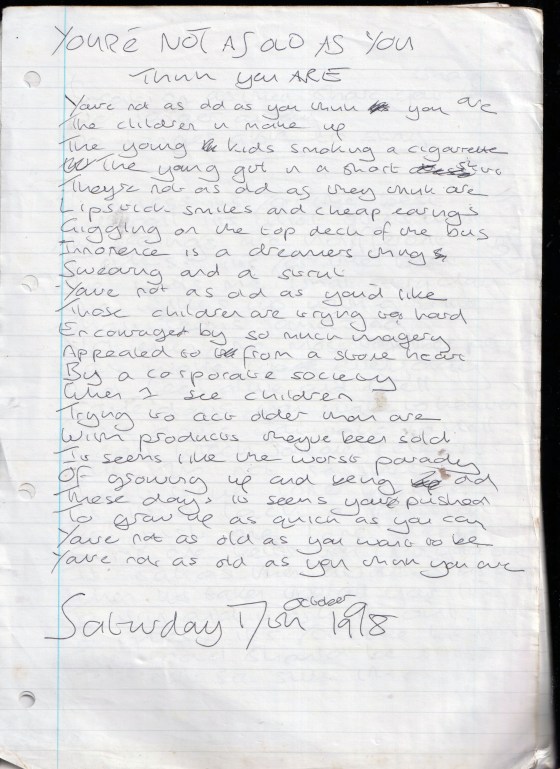 YOU'RE NOT AS OLD AS YOU
Think you ARE
You're not as old as you think you are
The children in make up
The young kids smoking a cigarette
The young girl in a short skirt
They're not as old as they think are
Lipstick smiles and cheap earings
Giggling on the top deck of the bus
Innocence is a dreamers thing
Swearing and a strut
You're not as old as you'd like
Those children are trying too hard
Encouraged by so much imagery
Appealed to from a stone heart
By a corporate society
When I see children
Trying to act older than are
With products they've been sold
It seems like the worst parady
Of growing up and being old
These days it seems you're pushed
To grow up as quick as you can
You're not as old as you want to be
You're not as old as you think you are
Saturday 17th October 1998